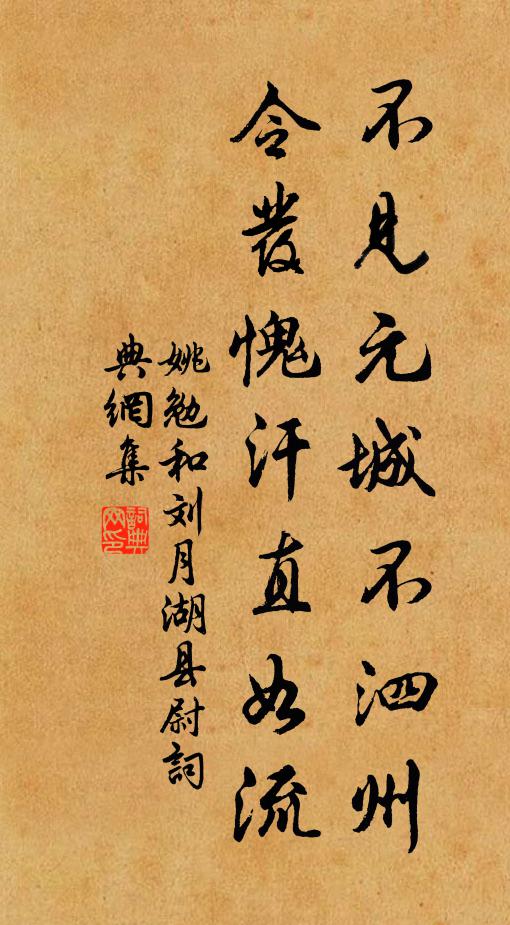 不見元城不泗州
令發愧汗直如流
姚勉和刘月湖县尉詞
典網集
詞典网印